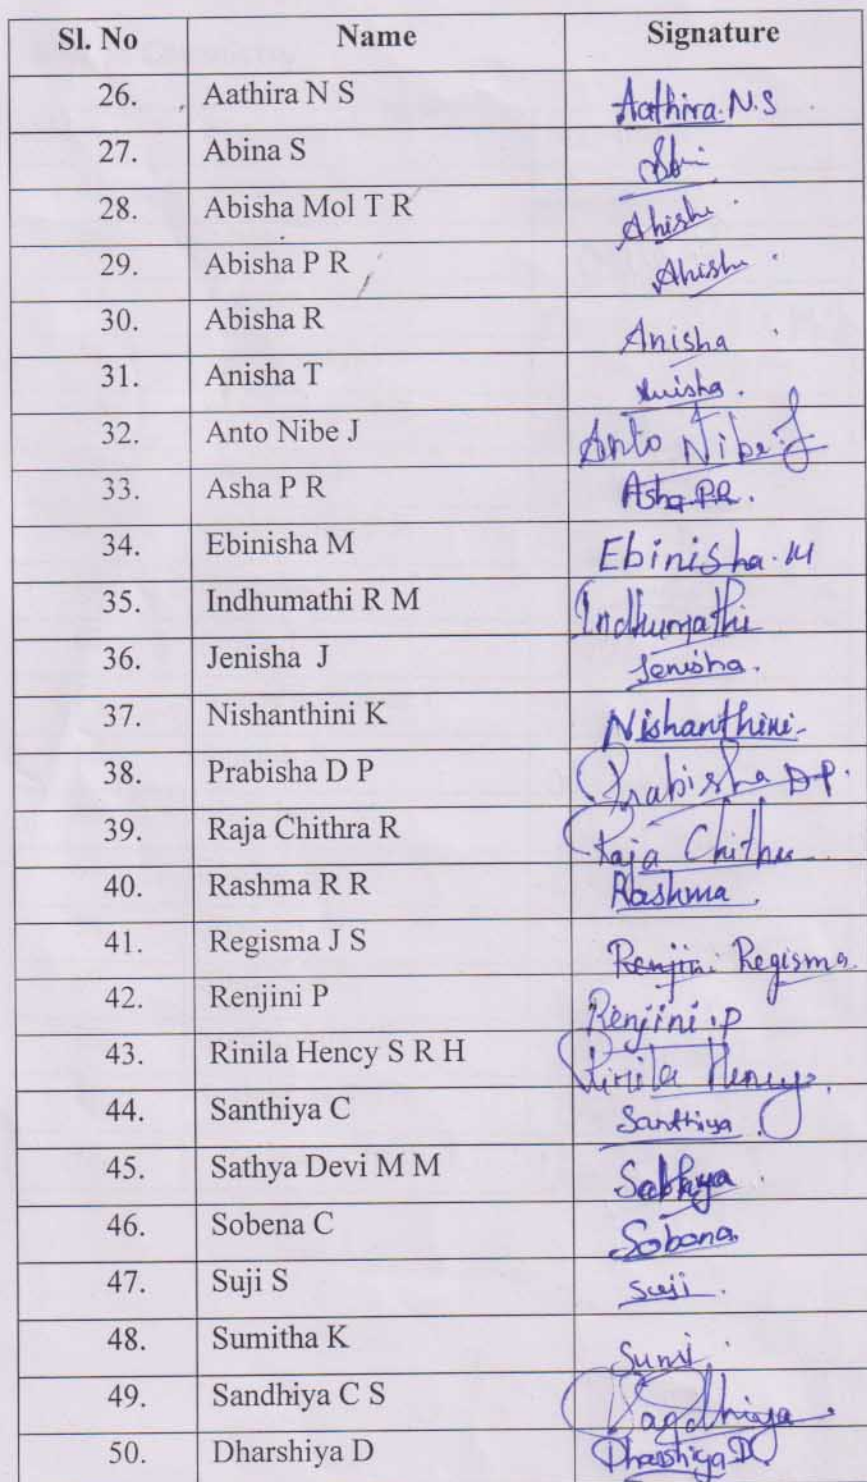 Sl. No Name Signature
26. Aathira N S Aathira N.S
27. Abina S
28. Abisha Mol T R Ahish
29. Abisha P R Ahish
30. Abisha R Anisha
31. Anisha T Anisha.
32. Anto Nibe J Anto Nibe J
33. Asha P R Asha P.R.
34. Ebinisha M Ebinisha. M
35. Indhumathi R M Indhumathi
36. Jenisha J Jenisha.
37. Nishanthini K Nishanthini
38. Prabisha D P Prabisha D P.
39. Raja Chithra R Raja Chithra
40. Rashma R R Rashma.
41. Regisma J S Renjini Regisma
42. Renjini P Renjini .P
43. Rinila Hency S R H Rinila Hency.
44. Santhiya C Santhiya.
45. Sathya Devi M M Sathya
46. Sobena C Sobana
47. Suji S Suji.
48. Sumitha K Sumi
49. Sandhiya C S Sandhiya
50. Dharshiya D Dharshiya D